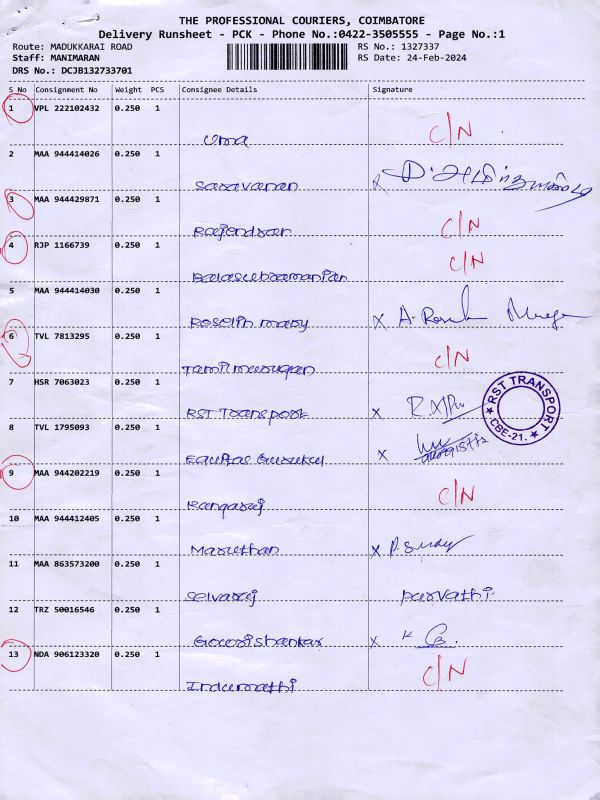 THE PROFESSIONAL COURIERS, COIMBATORE
Delivery Runsheet - PCK - Phone No.:0422-3505555 - Page No.:1
Route: MADUKKARAI ROAD RS No.: 1327337
Staff: MANIMARAN RS Date: 24-Feb-2024
DRS No.: DCJB132733701
S No Consignment No Weight PCS Consignee Details Signature
1 VPL 222102432 0.250 1
Uma C/N
2 MAA 944414026 0.250 1
Saravanan X
3 MAA 944429871 0.250 1
Rajendran C/N
4 RJP 1166739 0.250 1
Balasubramanian C/N
5 MAA 944414030 0.250 1
Roselin mary X A.
6 TVL 7813295 0.250 1
Tamil murugan C/N
7 HSR 7063023 0.250 1
RST Transport X
RST TRANSPORT
CBE-21.
8 TVL 1795093 0.250 1
X
9 MAA 944202219 0.250 1
Rangaraj C/N
10 MAA 944412405 0.250 1
Maruthan X
11 MAA 863573200 0.250 1
Selvaraj Parvathi.
12 TRZ 50016546 0.250 1
Gowrishankar X K
13 NDA 906123320 0.250 1
Indumathi C/N